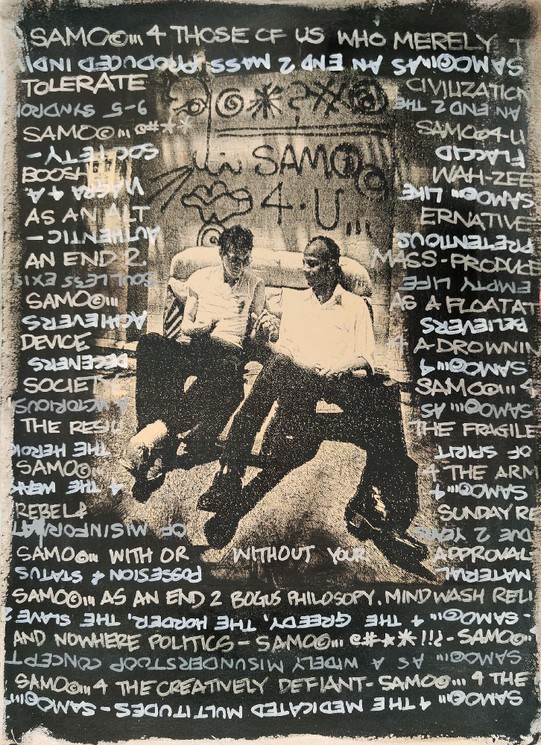 SAMO©... 4 THOSE OF US WHO MERELY T
SAMO©... AS AN END 2 MASS-PRODUCED INDI
TOLERATE CIVILIZATION
9-5 SYNDRO AN END 2 THE
SAMO©... @#** SAMO©4-U
SOCIETY- FLACCID
BOOSH WAH-ZEE
VIAGRA 4 A SAMO©... LIKE
AS AN ALT ERNATIVE
AUTHENTIC- PRETENTIOUS
AN END 2. MASS-PRODUCE
SOULLESS EXIS EMPTY LIFE
SAMO©... AS A FLOATAT
ACHIEVERS BELIEVERS
DEVICE 4 A-DROWNIN
DECENERS SAMO©... 4
SOCIETY SAMO©... 4
A VICTORIOUS SAMO©... AS
THE RESI THE FRAGILE
THE HEROI OF SPIRIT
SAMO©... 4 THE ARM
4 THE WEAK SAMO©... 4
REBEL& SUNDAY RE
OF MISINFORMAT DUE 2 YOUR
SAMO©... WITH OR WITHOUT YOUR APPROVAL
POSSESION & STATUS MATERIAL
SAMO©... AS AN END 2 BOGUS PHILOSOPY. MINDWASH RELI
-SAMO©... 4 THE GREEDY, THE HORDER, THE SLAVE 2
AND NOWHERE POLITICS - SAMO©... @#*※!!¿- SAMO©...
SAMO©... AS A WIDELY MISUNDERSTOOP CONCEPT
SAMO©... 4 THE CREATIVELY DEFIANT- SAMO©... 4 THE
SAMO©... 4 THE MEDICATED MULTITUDES- SAMO©...
SAMO©
4.U...